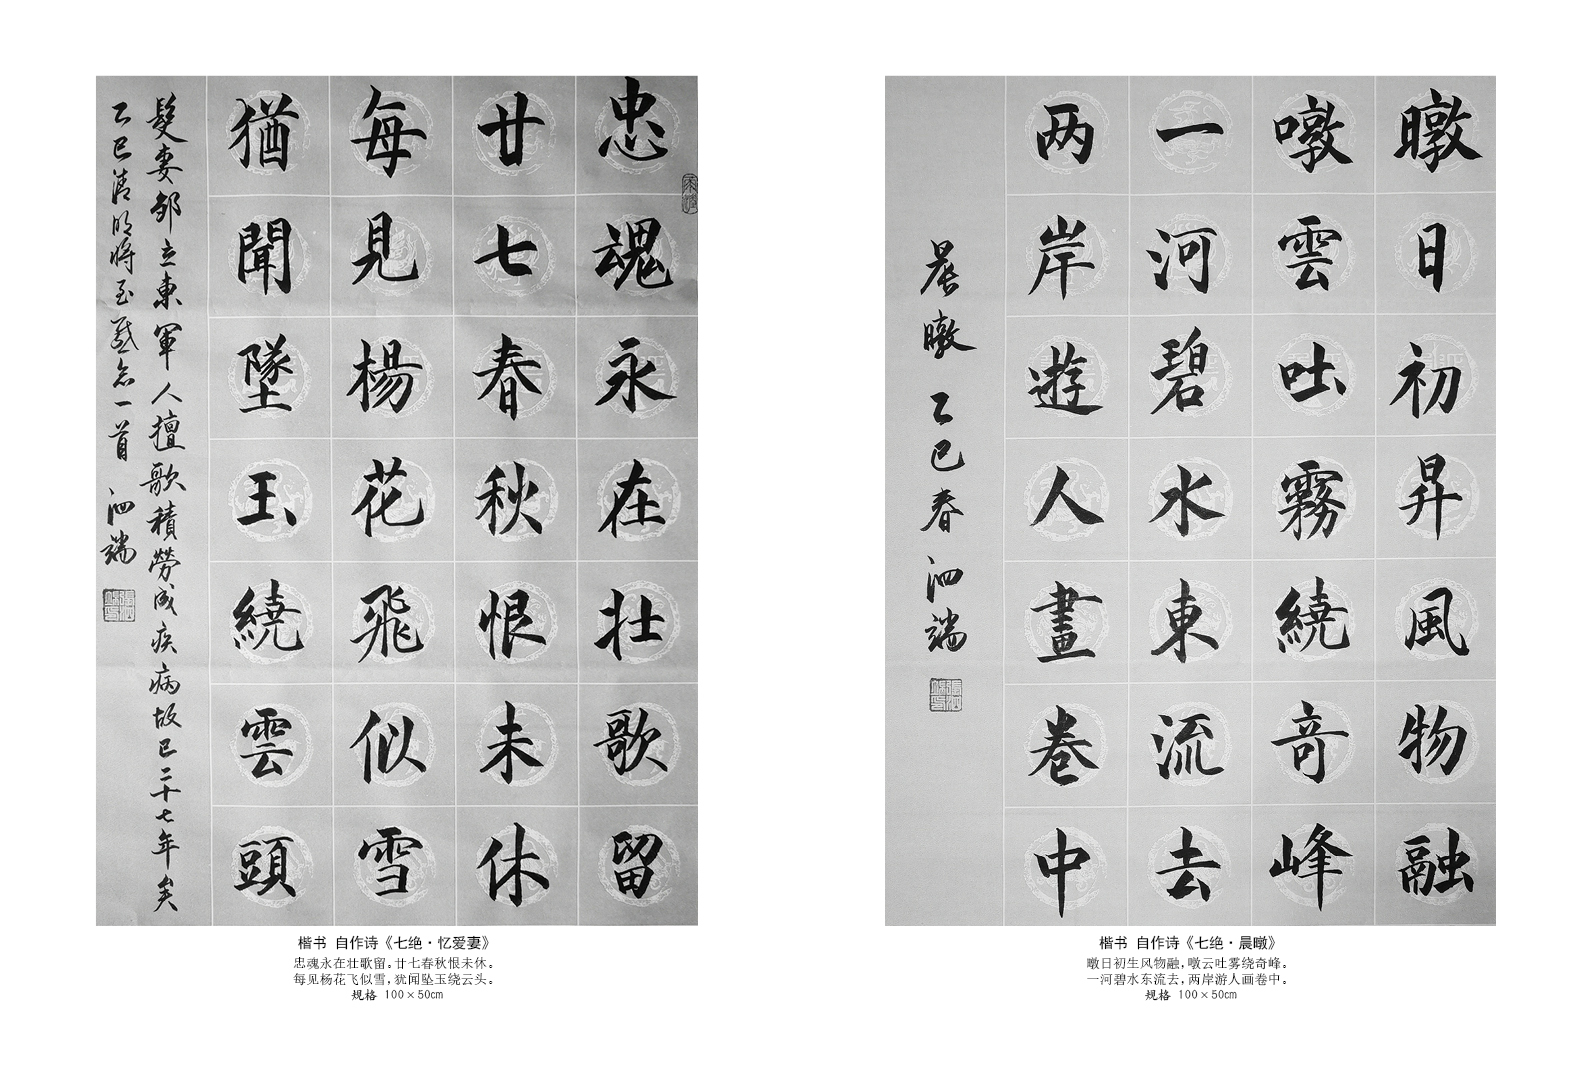 忠魂永在壮歌留
廿七春秋恨未休
每見楊花飛似雪
猶聞墜玉繞雲頭
髮妻邹立東軍人擅歌積勞成疾病故已二十七年矣
乙巳清明将至感念一首 泗端
楷书 自作诗《七绝·忆爱妻》
忠魂永在壮歌留。廿七春秋恨未休。
每见杨花飞似雪，犹闻坠玉绕云头。
规格 100×50㎝
暾日初昇風物融
噋雲吐霧繞奇峰
一河碧水東流去
两岸遊人畫卷中
晨暾 乙巳春 泗端
楷书 自作诗《七绝·晨暾》
暾日初生风物融，噋云吐雾绕奇峰。
一河碧水东流去，两岸游人画卷中。
规格 100×50㎝